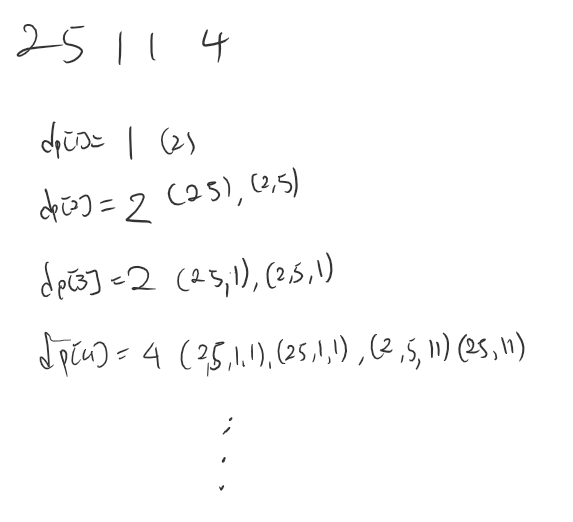 25 1 1 4
dp[1]= 1 (2)
dp[2] = 2 (25), (2,5)
dp[3] = 2 (25,1), (2,5,1)
dp[4] = 4 (2,5,1,1), (25,1,1), (2,5,11) (25,11)